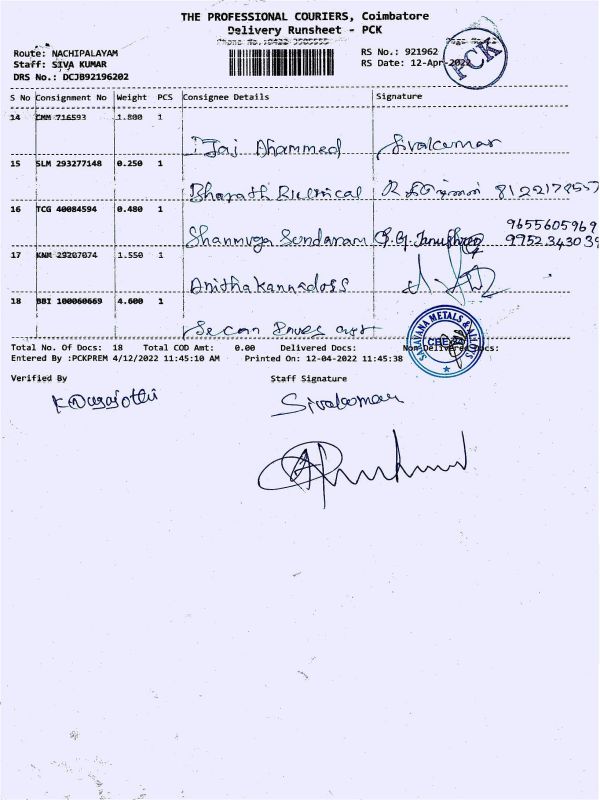 THE PROFESSIONAL COURIERS, Coimbatore
Delivery Runsheet - PCK
Route: NACHIPALAYAM
Staff: SIVA KUMAR
DRS No.: DCJB92196202
RS No.: 921962
RS Date: 12-Apr-2022
PCK
S No Consignment No Weight PCS Consignee Details Signature
14 CMM 716593 1.800 1
Ahammed Sivakumar
15 SLM 293277148 0.250 1
Bharath
16 TCG 40084594 0.480 1
Shanmuga Sundaram 9655605969
9952343039
17 KNR 29207074 1.550 1
Anitha kannadoss
18 BBI 100060669 4.600 1
SARAVANA METALS & ALLOYS
Total No. Of Docs: 18 Total COD Amt: 0.00 Delivered Docs: Non Delivered Docs:
Entered By :PCKPREM 4/12/2022 11:45:10 AM Printed On: 12-04-2022 11:45:38
Verified By Staff Signature
Sivakumar